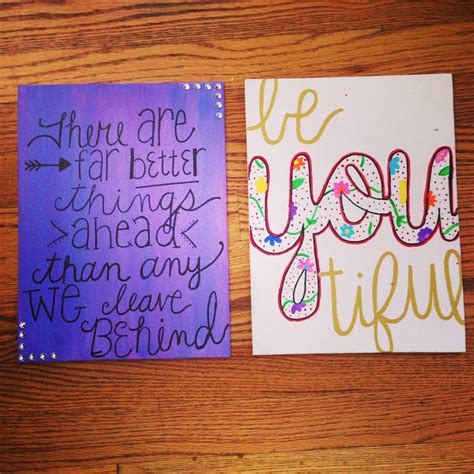 There are
far better
things
ahead
than any
We leave
BEhind
be
you
tiful